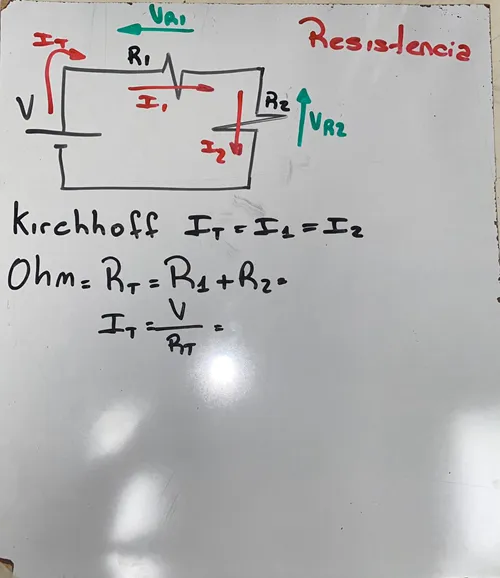 Resistencia
VR1
IT
R1
I1
V
R2
I2
VR2
Kirchhoff IT = I1 = I2
Ohm = RT = R1 + R2 =
IT = V / RT =